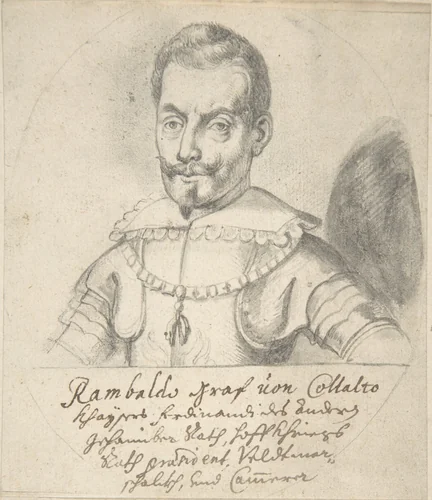 Rambaldo Graf von Collalto
Khaysers Ferdinandi des Andern
Gehaimber Rath, Hoffkhriegs
Rath præsident, Veldtmar¬
schalckh, und Camerer